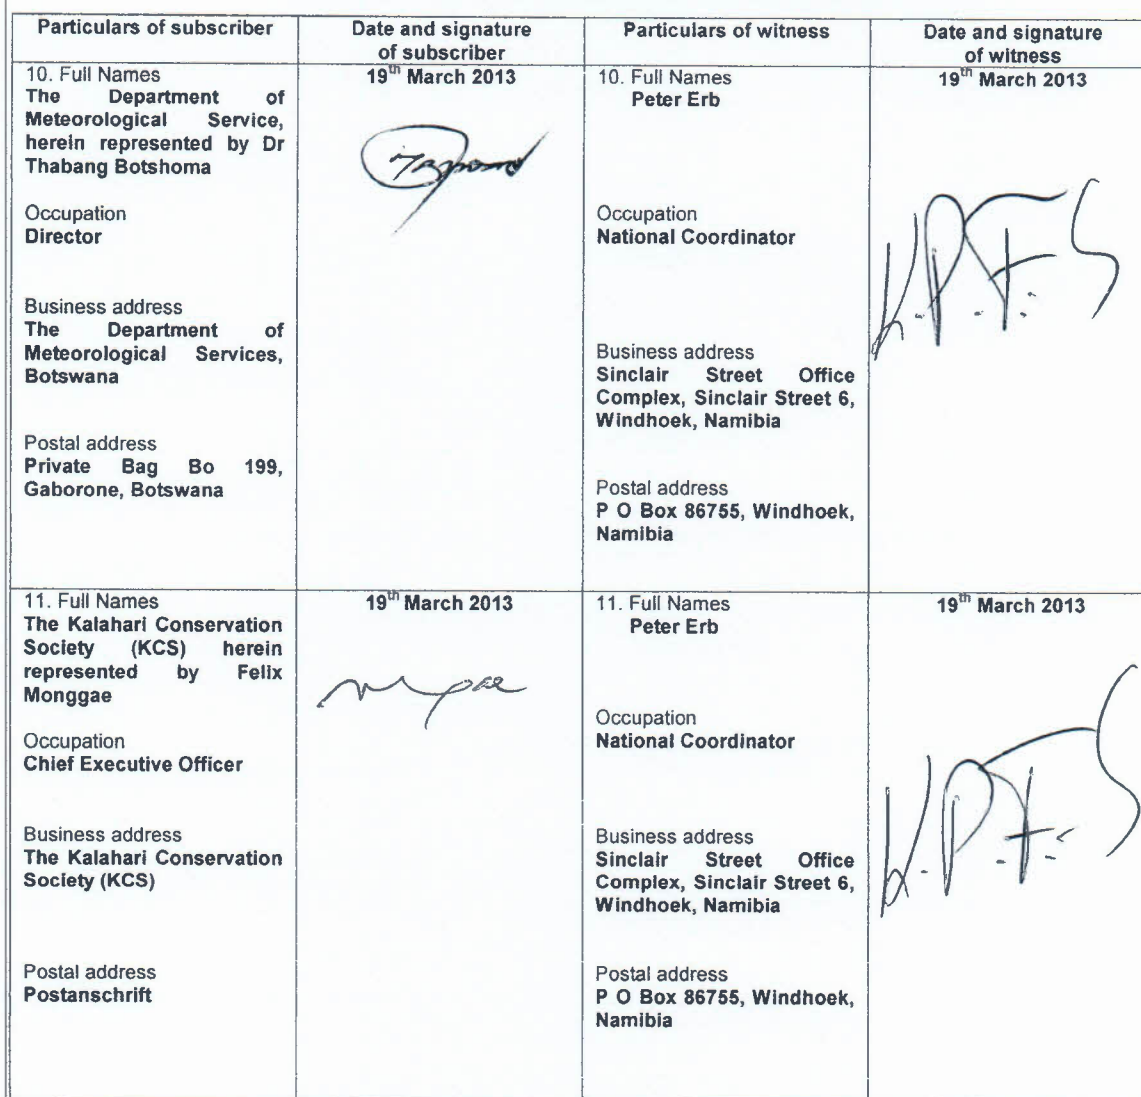 Particulars of subscriber
Date and signature
of subscriber
Particulars of witness
Date and signature
of witness
10. Full Names
The Department of
Meteorological Service,
herein represented by Dr
Thabang Botshoma
Occupation
Director
Business address
The Department of
Meteorological Services,
Botswana
Postal address
Private Bag Bo 199,
Gaborone, Botswana
19th March 2013
10. Full Names
Peter Erb
Occupation
National Coordinator
Business address
Sinclair Street Office
Complex, Sinclair Street 6,
Windhoek, Namibia
Postal address
P O Box 86755, Windhoek,
Namibia
19th March 2013
11. Full Names
The Kalahari Conservation
Society (KCS) herein
represented by Felix
Monggae
Occupation
Chief Executive Officer
Business address
The Kalahari Conservation
Society (KCS)
Postal address
Postanschrift
19th March 2013
11. Full Names
Peter Erb
Occupation
National Coordinator
Business address
Sinclair Street Office
Complex, Sinclair Street 6,
Windhoek, Namibia
Postal address
P O Box 86755, Windhoek,
Namibia
19th March 2013